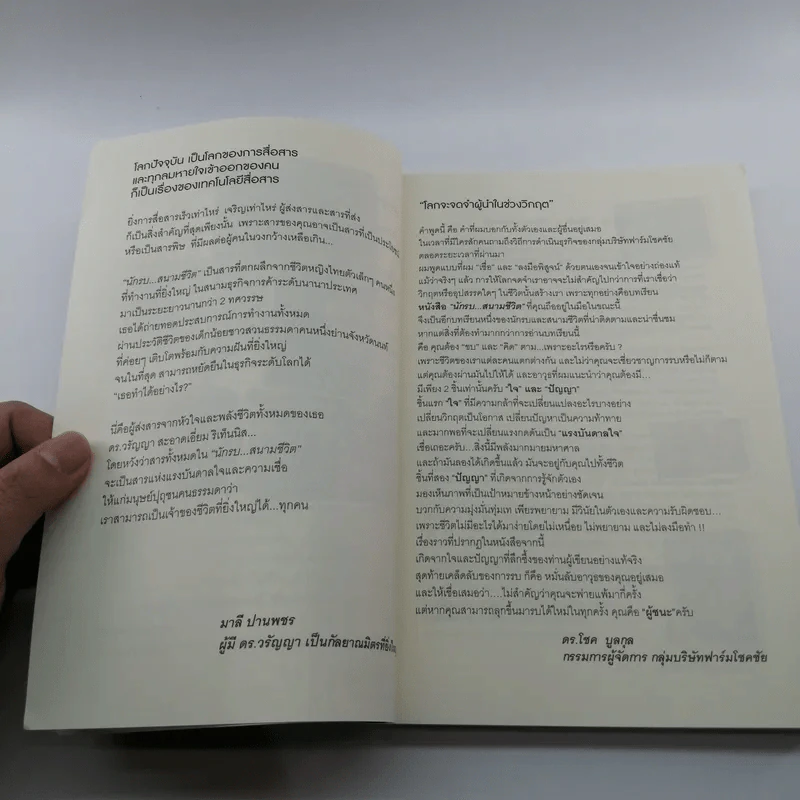 โลกปัจจุบัน เป็นโลกของการสื่อสาร
และทุกลมหายใจเข้าออกของคน
ก็เป็นเรื่องของเทคโนโลยีสื่อสาร
ยิ่งการสื่อสารเร็วเท่าไหร่ เจริญเท่าไหร่ ผู้ส่งสารและสารที่ส่ง
ก็เป็นสิ่งสำคัญที่สุดเพียงนั้น เพราะสารของคุณอาจเป็นสารที่เป็น
หรือเป็นสารพิษ ที่มีผลต่อผู้คนในวงกว้างเหลือเกิน...
"นักรบ...สนามชีวิต" เป็นสารที่ตกผลึกจากชีวิตหญิงไทยตัวเล็กๆ คนหนึ่ง
ที่ทำงานที่ยิ่งใหญ่ ในสนามธุรกิจการค้าระดับนานาประเทศ
มาเป็นระยะยาวนานกว่า 2 ทศวรรษ
เธอได้ถ่ายทอดประสบการณ์การทำงานทั้งหมด
ผ่านประวัติชีวิตของเด็กน้อยชาวสวนธรรมดาคนหนึ่งย่านจังหวัดนนท์
ที่ค่อยๆ เติบโตพร้อมกับความฝันที่ยิ่งใหญ่
จนในที่สุด สามารถหยัดยืนในธุรกิจระดับโลกได้
"เธอทำได้อย่างไร?"
นี่คือผู้ส่งสารจากหัวใจและพลังชีวิตทั้งหมดของเธอ
ดร.วรัญญา สะอาดเอี่ยม ริเท็นนิส...
โดยหวังว่าสารทั้งหมดใน "นักรบ...สนามชีวิต"
จะเป็นสารแห่งแรงบันดาลใจและความเชื่อ
ให้แก่มนุษย์ปุถุชนคนธรรมดาว่า
เราสามารถเป็นเจ้าของชีวิตที่ยิ่งใหญ่ได้...ทุกคน
มาลี ปานพชร
ผู้มี ดร.วรัญญา เป็นกัลยาณมิตรที่ยิ่งใหญ่
"โลกจะจดจำผู้นำในช่วงวิกฤต"
คำพูดนี้ คือ คำที่ผมบอกกับทั้งตัวเองและผู้อื่นอยู่เสมอ
ในเวลาที่มีใครสักคนถามถึงวิถีการดำเนินธุรกิจของกลุ่มบริษัทฟาร์มโชคชัย
ตลอดระยะเวลาที่ผ่านมา
ผมพูดแบบที่ผม "เชื่อ" และ "ลงมือพิสูจน์" ด้วยตนเองจนเข้าใจอย่างถ่องแท้
แม้ว่าจริงๆ แล้ว การให้โลกจดจำเราอาจจะไม่สำคัญไปกว่าการที่เราเชื่อว่า
วิกฤตหรืออุปสรรคใดๆ ในชีวิตนั้นสร้างเรา เพราะทุกอย่างคือบทเรียน
หนังสือ "นักรบ...สนามชีวิต" ที่คุณถืออยู่ในมือในขณะนี้
จึงเป็นอีกบทเรียนหนึ่งของนักรบและสนามชีวิตที่น่าติดตามและน่าชื่นชม
หากแต่สิ่งที่ต้องทำมากกว่าการอ่านบทเรียนนี้
คือ คุณต้อง "ขบ" และ "คิด" ตาม...เพราะอะไรหรือครับ ?
เพราะชีวิตของเราแต่ละคนแตกต่างกัน และไม่ว่าคุณจะเชี่ยวชาญการรบหรือไม่ก็ตาม
แต่คุณต้องผ่านมันไปให้ได้ และอาวุธที่ผมแนะนำว่าคุณต้องมี...
มีเพียง 2 ชิ้นเท่านั้นครับ "ใจ" และ "ปัญญา"
ชิ้นแรก "ใจ" ที่มีความกล้าที่จะเปลี่ยนแปลงอะไรบางอย่าง
เปลี่ยนวิกฤตเป็นโอกาส เปลี่ยนปัญหาเป็นความท้าทาย
และมากพอที่จะเปลี่ยนแรงกดดันเป็น "แรงบันดาลใจ"
เชื่อเถอะครับ...สิ่งนี้มีพลังมากมายมหาศาล
และถ้ามันลองได้เกิดขึ้นแล้ว มันจะอยู่กับคุณไปทั้งชีวิต
ชิ้นที่สอง "ปัญญา" ที่เกิดจากการรู้จักตัวเอง
มองเห็นภาพที่เป็นเป้าหมายข้างหน้าอย่างชัดเจน
บวกกับความมุ่งมั่นทุ่มเท เพียรพยายาม มีวินัยในตัวเองและความรับผิดชอบ...
เพราะชีวิตไม่มีอะไรได้มาง่ายโดยไม่เหนื่อย ไม่พยายาม และไม่ลงมือทำ !!
เรื่องราวที่ปรากฏในหนังสือจากนี้
เกิดจากใจและปัญญาที่ลึกซึ้งของท่านผู้เขียนอย่างแท้จริง
สุดท้ายเคล็ดลับของการรบ ก็คือ หมั่นลับอาวุธของคุณอยู่เสมอ
และให้เชื่อเสมอว่า....ไม่สำคัญว่าคุณจะพ่ายแพ้มากี่ครั้ง
แต่หากคุณสามารถลุกขึ้นมารบได้ใหม่ในทุกครั้ง คุณคือ "ผู้ชนะ"ครับ
ดร.โชค บูลกุล
กรรมการผู้จัดการ กลุ่มบริษัทฟาร์มโชคชัย